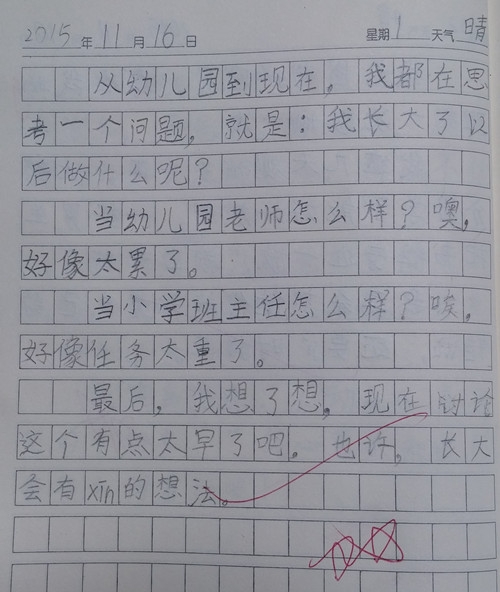 2015年11月16日 星期1天气晴
从幼儿园到现在，我都在思
考一个问题，就是：我长大了以
后做什么呢？
当幼儿园老师怎么样？噢，
好像太累了。
当小学班主任怎么样？唉，
好像任务太重了。
最后，我想了想，现在讨论
这个有点太早了吧。也许，长大
会有xin的想法。